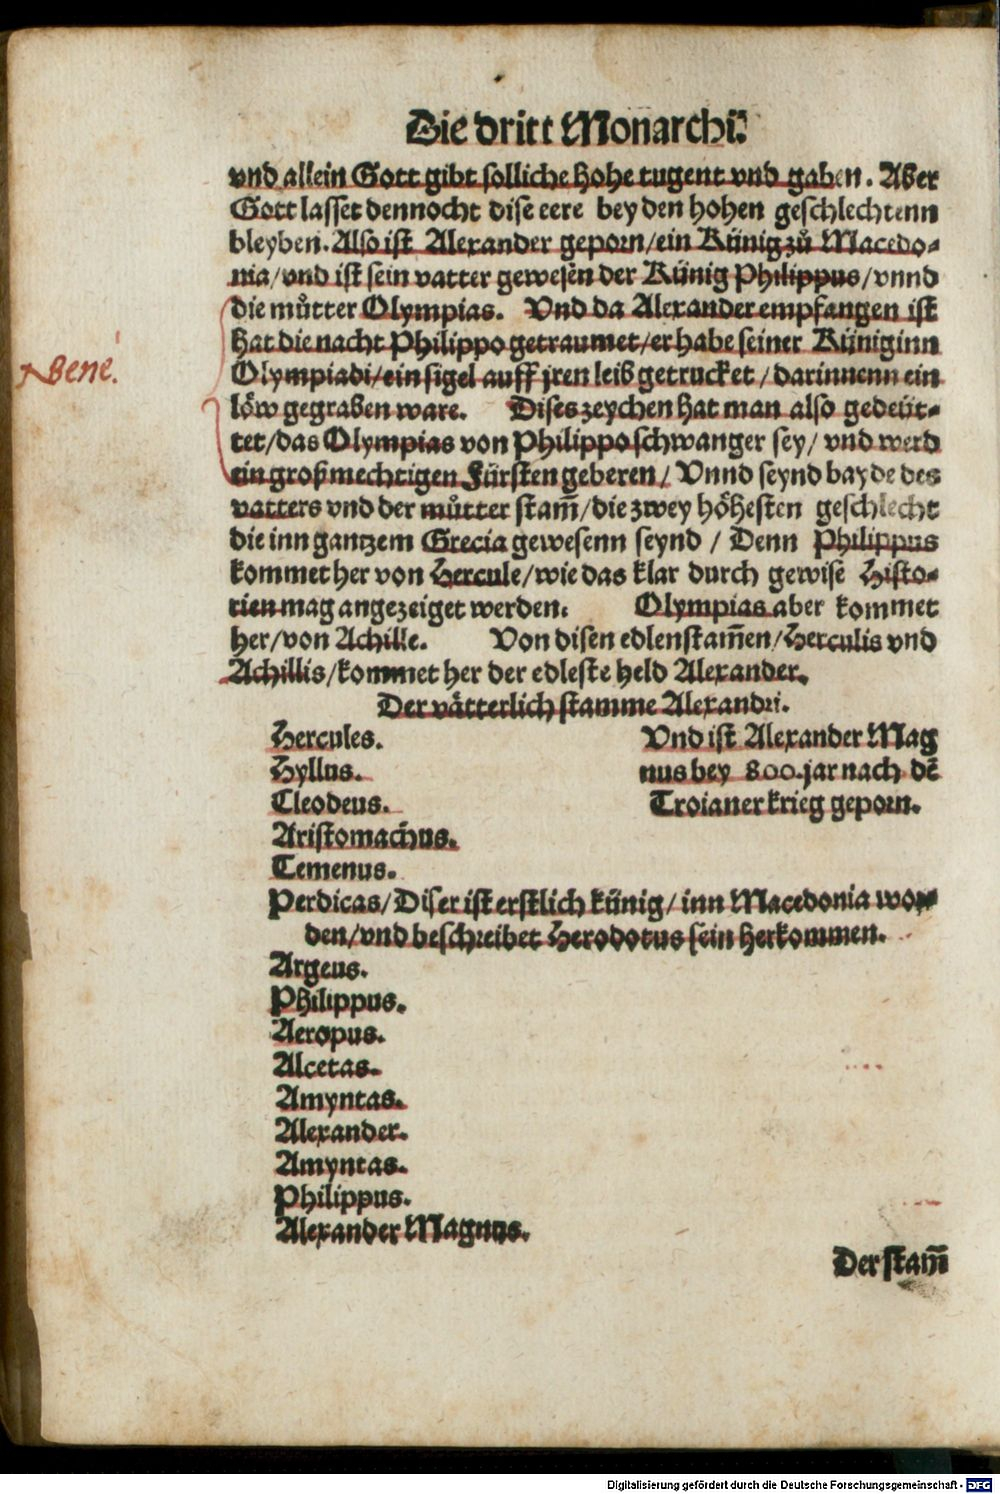 Die dritt Monarchi.
vnd allein Gott gibt solliche hohe tugent vnd gaben. Aber
Gott lasset dennocht dise eere bey den hohen geschlechtenn
bleyben. Also ist Alexander geporn/ein Künig zů Macedo-
nia/vnd ist sein vatter gewesen der Künig Philippus/vnnd
die můtter Olympias. Vnd da Alexander empfangen ist
hat die nacht Philippo getraumet/er habe seiner Küniginn
Olympiadi/ein sigel auff jren leib getrucket/darinnenn ein
löw gegraben ware. Dises zeychen hat man also gedeüt-
tet/das Olympias von Philippo schwanger sey/vnd werd
ein großmechtigen Fürsten geberen/Vnnd seynd bayde des
vatters vnd der můtter stam̃/die zwey höhesten geschlecht
die inn gantzem Grecia gewesenn seynd/Denn Philippus
kommet her von Hercule/wie das klar durch gewise Histo-
rien mag angezeiget werden. Olympias aber kommet
her/von Achille. Von disen edlen stam̃en/Herculis vnd
Achillis/kommet her der edleste held Alexander.
Bene.
Der vätterlich stamme Alexandri.
Hercules.
Hyllus.
Cleodeus.
Aristomachus.
Temenus.
Vnd ist Alexander Mag
nus bey 800.jar nach dẽ
Troianer krieg geporn.
Perdicas/Diser ist erstlich künig/inn Macedonia wor-
den/vnd beschreibet Herodotus sein herkommen.
Argeus.
Philippus.
Aeropus.
Alcetas.
Amyntas.
Alexander.
Amyntas.
Philippus.
Alexander Magnus.
Der stam̃
Digitalisierung gefördert durch die Deutsche Forschungsgemeinschaft - DFG